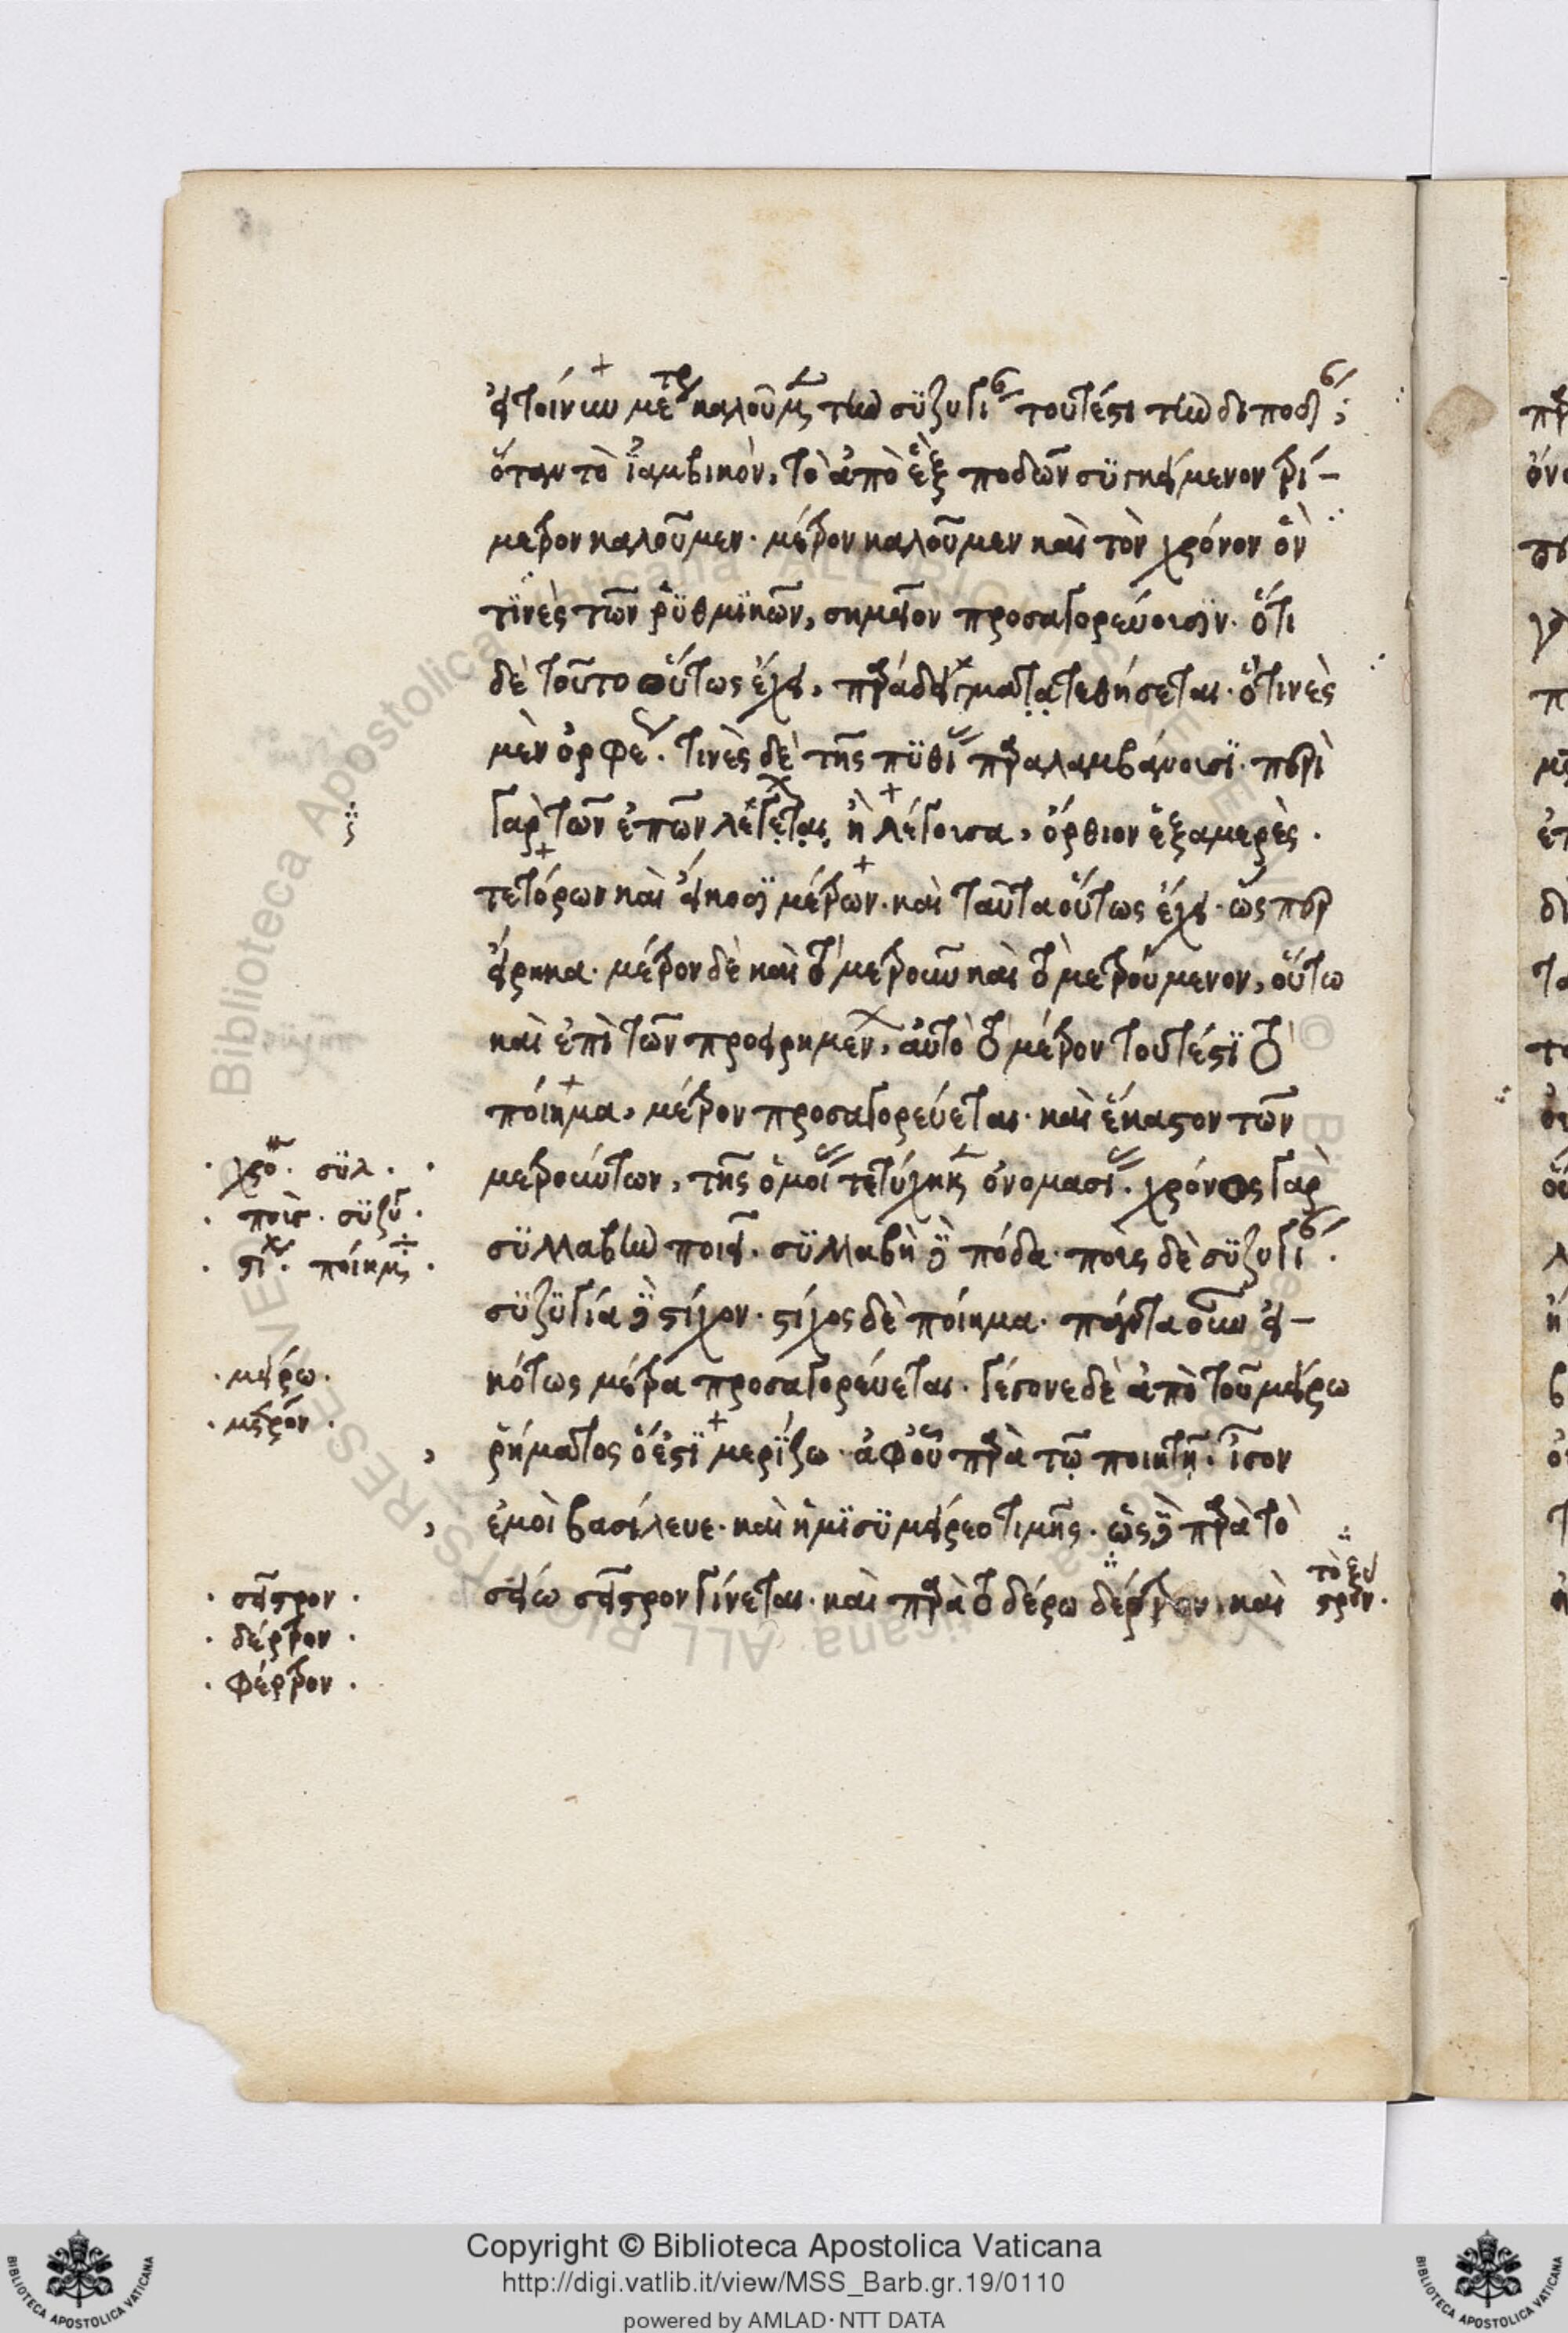 εἰ τοίνυν μέτρ καλοῦμ τὴν συζυγί τουτέστι τὴν διποδ;
ὅταν τὸ ἰαμβικὸν, τὸ ἀπὸ ἓξ ποδῶν συγκείμενον τρί-
μετρον καλοῦμεν· μέτρον καλοῦμεν καὶ τὸν χρόνον ὃν
τινὲς τῶν ῥυθμικῶν, σημεῖον προσαγορεύουσιν· ὅτι
δὲ τοῦτο οὕτως ἔχει, παράδειγματα τεθήσεται· ὅτινὲς
μὲν ὀρφε. τινὲς δὲ τῆς πυθί παραλαμβάνουσι· περὶ
γὰρ τῶν ἐπῶν λέγεται ἡ λέγουσα, ὄρθιον ἑξαμερὲς.
τετόρων καὶ εἴκοσι μέτρων. καὶ ταῦτα οὕτως ἔχει· ὥς περ
εἴρηκα· μέτρον δὲ καὶ τὸ μετροῦν καὶ τὸ μετρούμενον, οὕτω
καὶ ἐπὶ τῶν προειρημέν, αὐτὸ τὸ μέτρον τουτέστι τὸ
πόιημα, μέτρον προσαγορεύεται· καὶ ἕκαστον τῶν
μετρούντων, τῆς ὁμοί τετύχηκ ὀνομασί. χρόνος γὰρ
συλλαβὴν ποιεῖ. συλλαβὴ δὲ πόδα· ποὺς δὲ συζυγί.
συζυγία δὲ στίχον· στίχος δὲ πόιημα· πάντα οὖν εἰ-
κότως μέτρα προσαγορεύεται. γέγονε δὲ ἀπὸ τοῦ μείρω
ῥήματος ὅ ἐστι μερίζω· ἀφ οὗ παρὰ τῷ ποιητῇ· ἶσον
ἐμοὶ βασίλευε· καὶ ἥμισυ μείρεο τιμῆς· ὡς δὲ παρὰ τὸ
σείω σεῖστρον γίνεται· καὶ παρὰ τὸ δέρω δέρτρον, καὶ
· χρό· συλ ·
· ποὺς · συζυ ·
· στι · πόιημ ·
· μείρω·
· μέτρον ·
· σεῖστρον ·
· δέρτρον ·
· φέρτρον ·
Copyright © Biblioteca Apostolica Vaticana
http://digi.vatlib.it/view/MSS_Barb.gr.19/0110
powered by AMLAD · NTT DATA